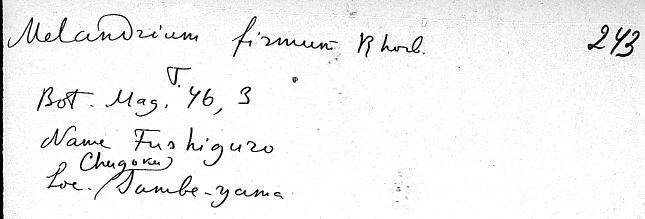 Melandrium firmum Rhorb. 243
Bot. Mag. T. 46, 3
Name Fushiguro
Chugoku
Loc. Sambe-yama